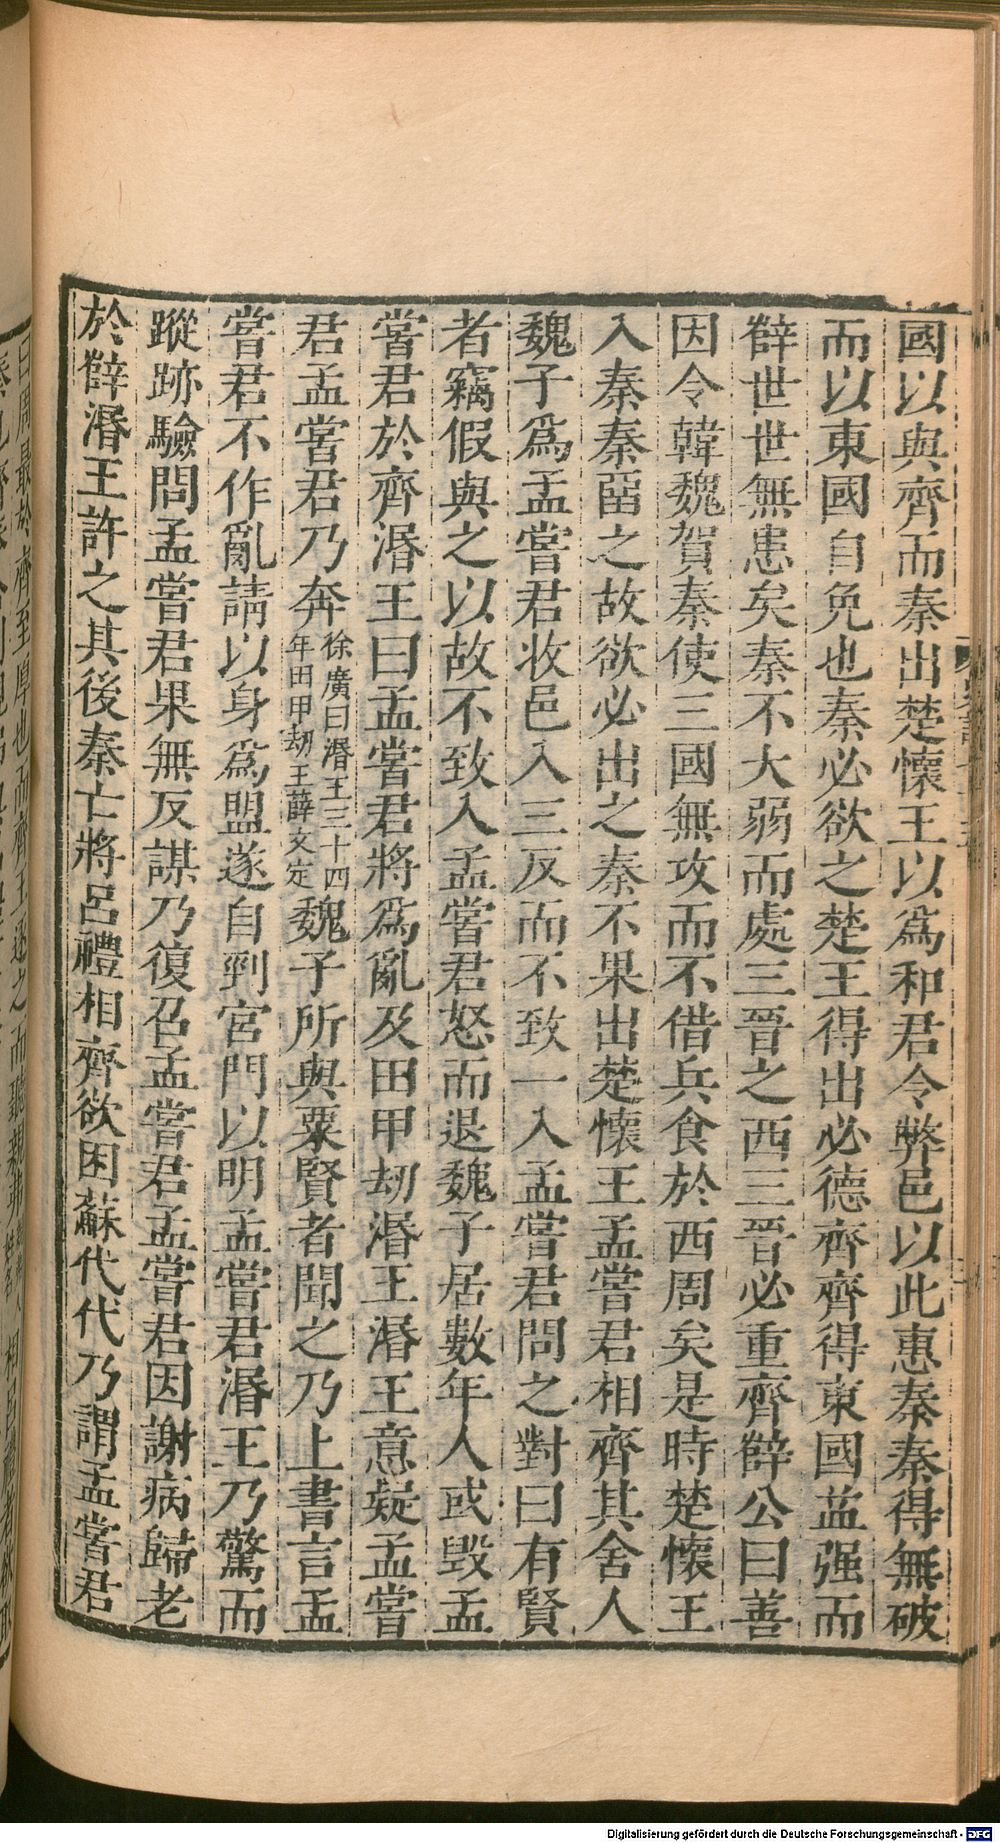 國以與齊而秦出楚懷王以爲和君令弊邑以此惠秦秦得無破
而以東國自免也秦必欲之楚王得出必德齊齊得東國益强而
薛世世無患矣秦不大弱而處三晉之西三晉必重齊薛公曰善
因令韓魏賀秦使三國無攻而不借兵食於西周矣是時楚懷王
入秦秦畱之故欲必出之秦不果出楚懷王孟嘗君相齊其舍人
魏子爲孟嘗君收邑入三反而不致一入孟嘗君問之對曰有賢
者竊假與之以故不致入孟嘗君怒而退魏子居數年人或毀孟
嘗君於齊湣王曰孟嘗君將爲亂及田甲劫湣王湣王意疑孟嘗
君孟嘗君乃奔徐廣曰湣王三十四年田甲劫王薛文定魏子所與粟賢者聞之乃上書言孟
嘗君不作亂請以身爲盟遂自剄宮門以明孟嘗君湣王乃驚而
蹤跡驗問孟嘗君果無反謀乃復召孟嘗君孟嘗君因謝病歸老
於薛湣王許之其後秦亡將呂禮相齊欲困蘇代代乃謂孟嘗君
Digitalisierung gefördert durch die Deutsche Forschungsgemeinschaft - DFG